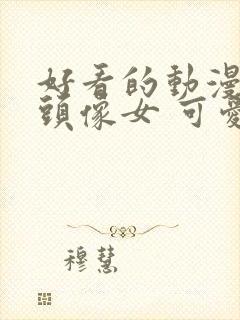 好看的動漫
頭像女 可愛
穆慧